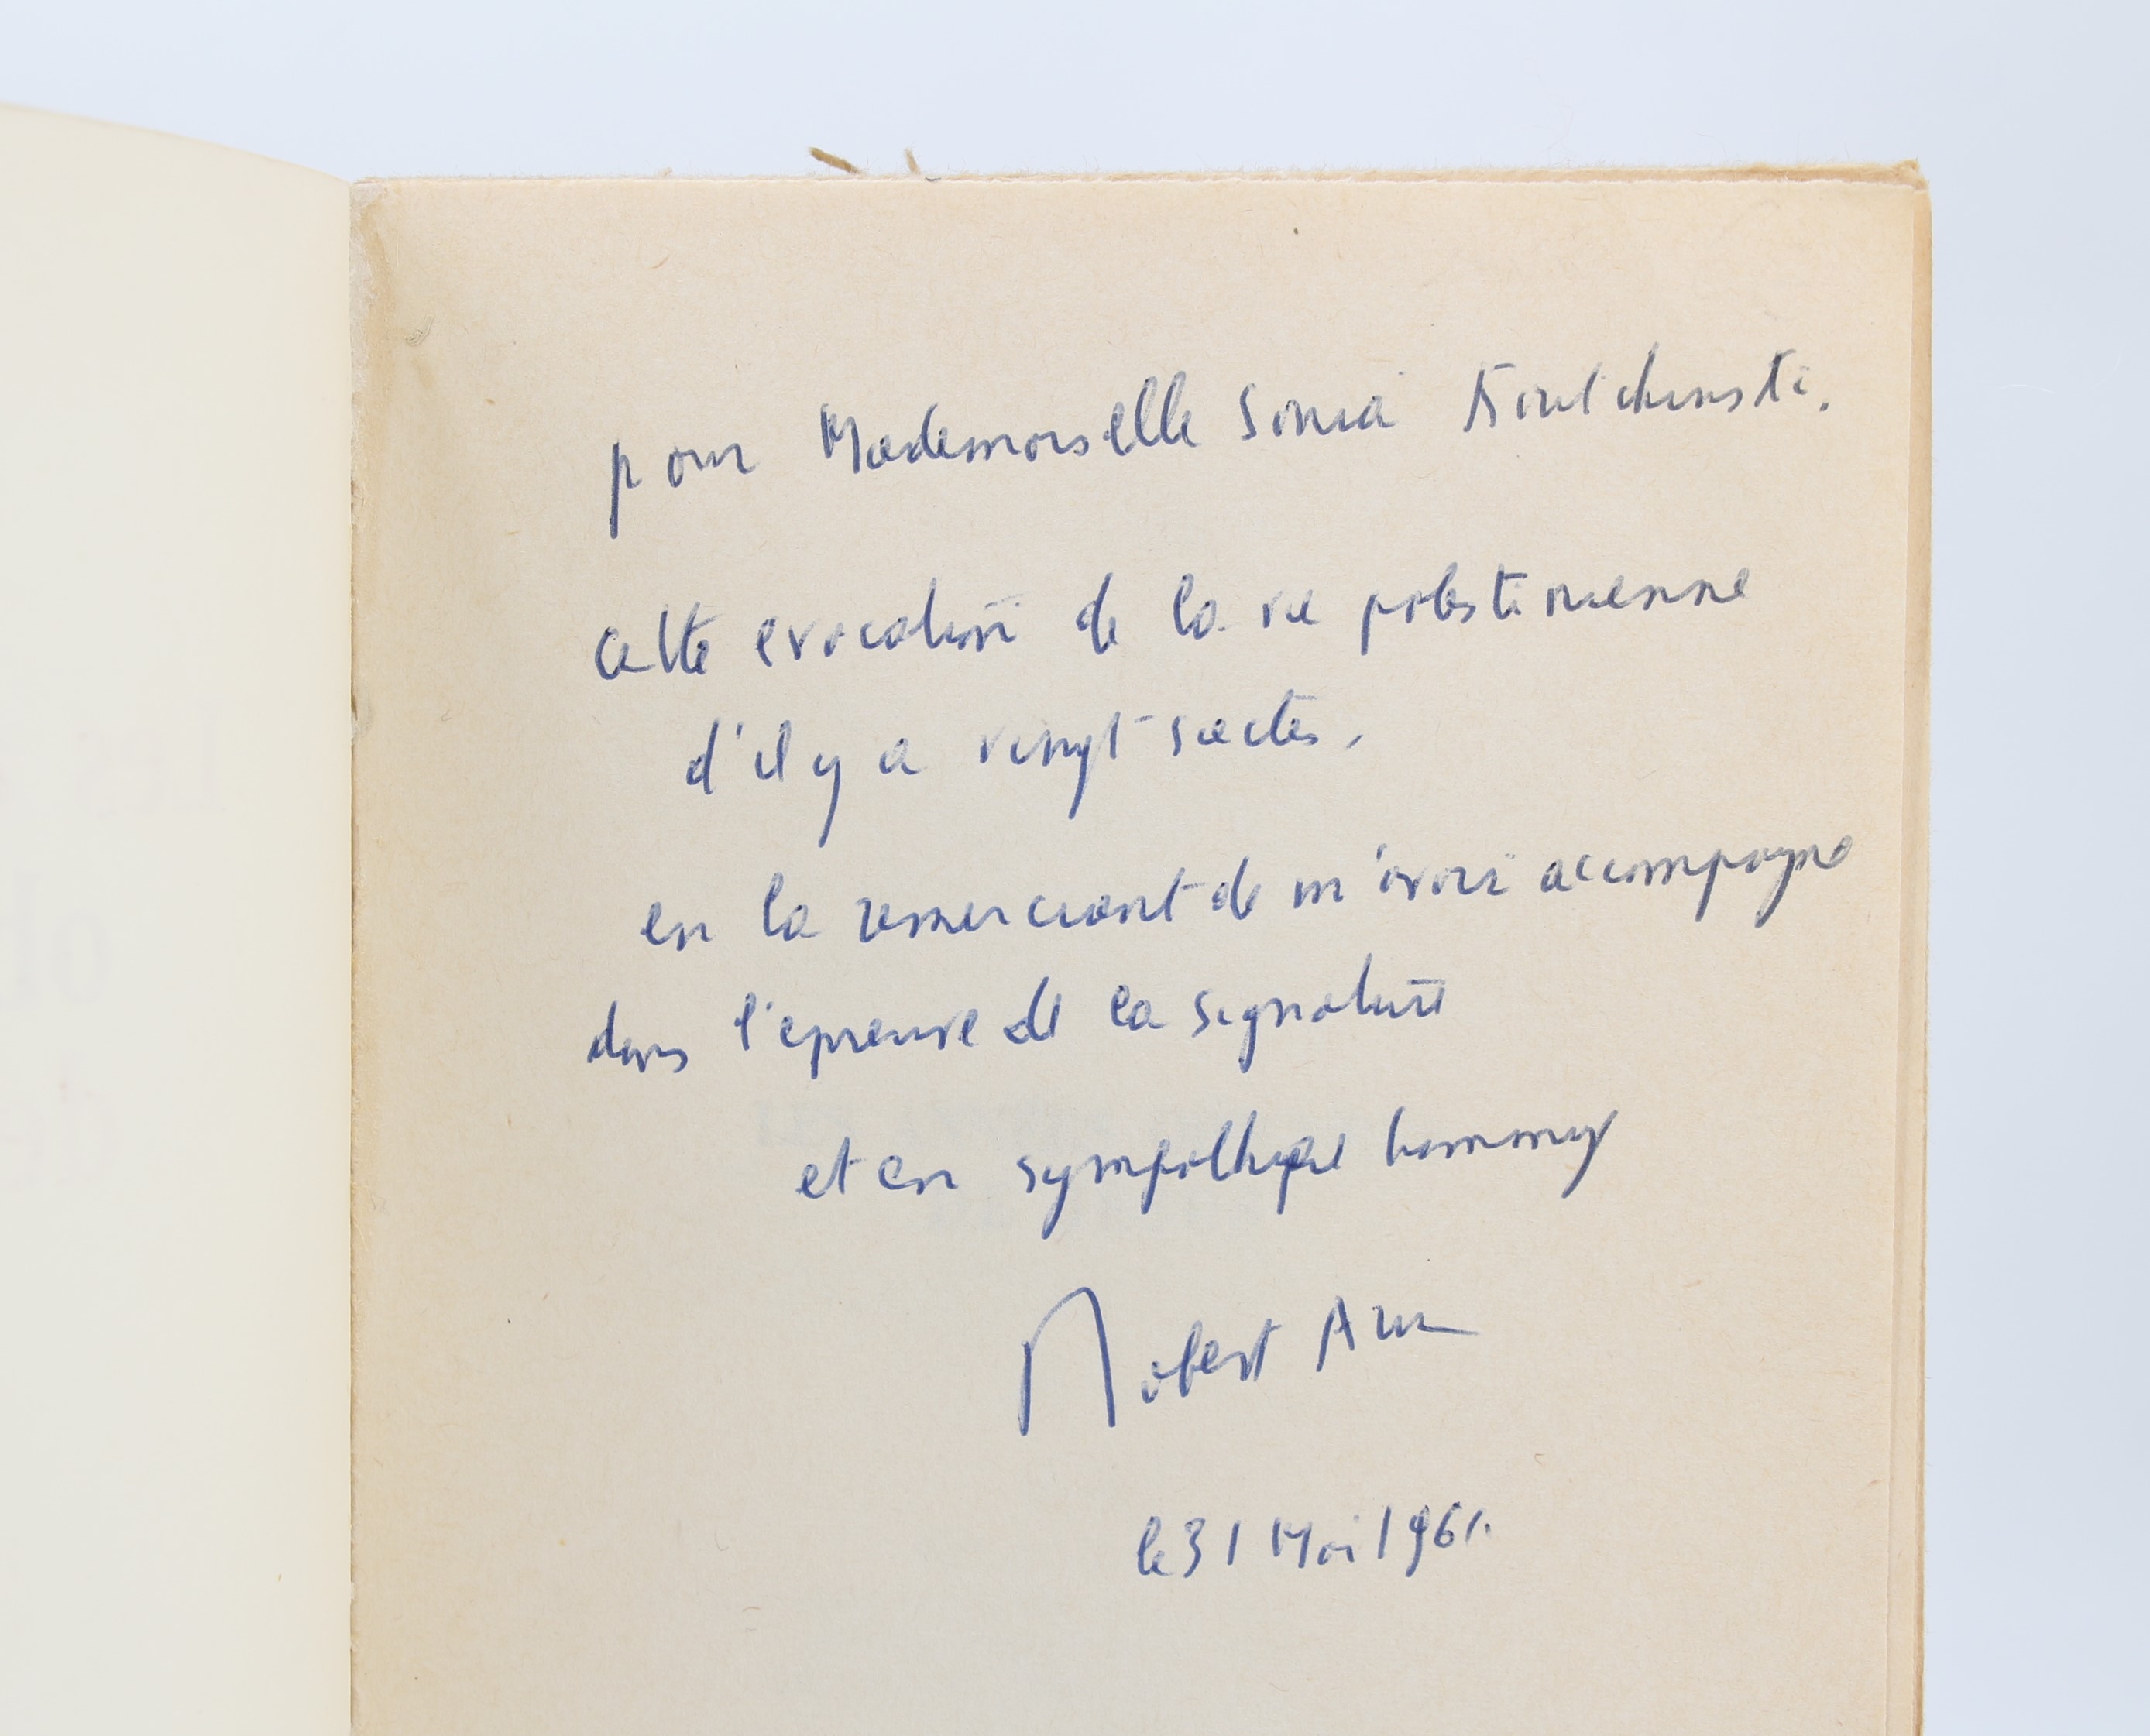 pour Mademoiselle Sonia
cette evocation de la vie palestinienne
d'il y a vingt siecles.
en la remerciant de m'avoir accompagné
dans l'epreuve de la signature
et en sympathique hommage
Robert Aron
le 31 Mai 1961.